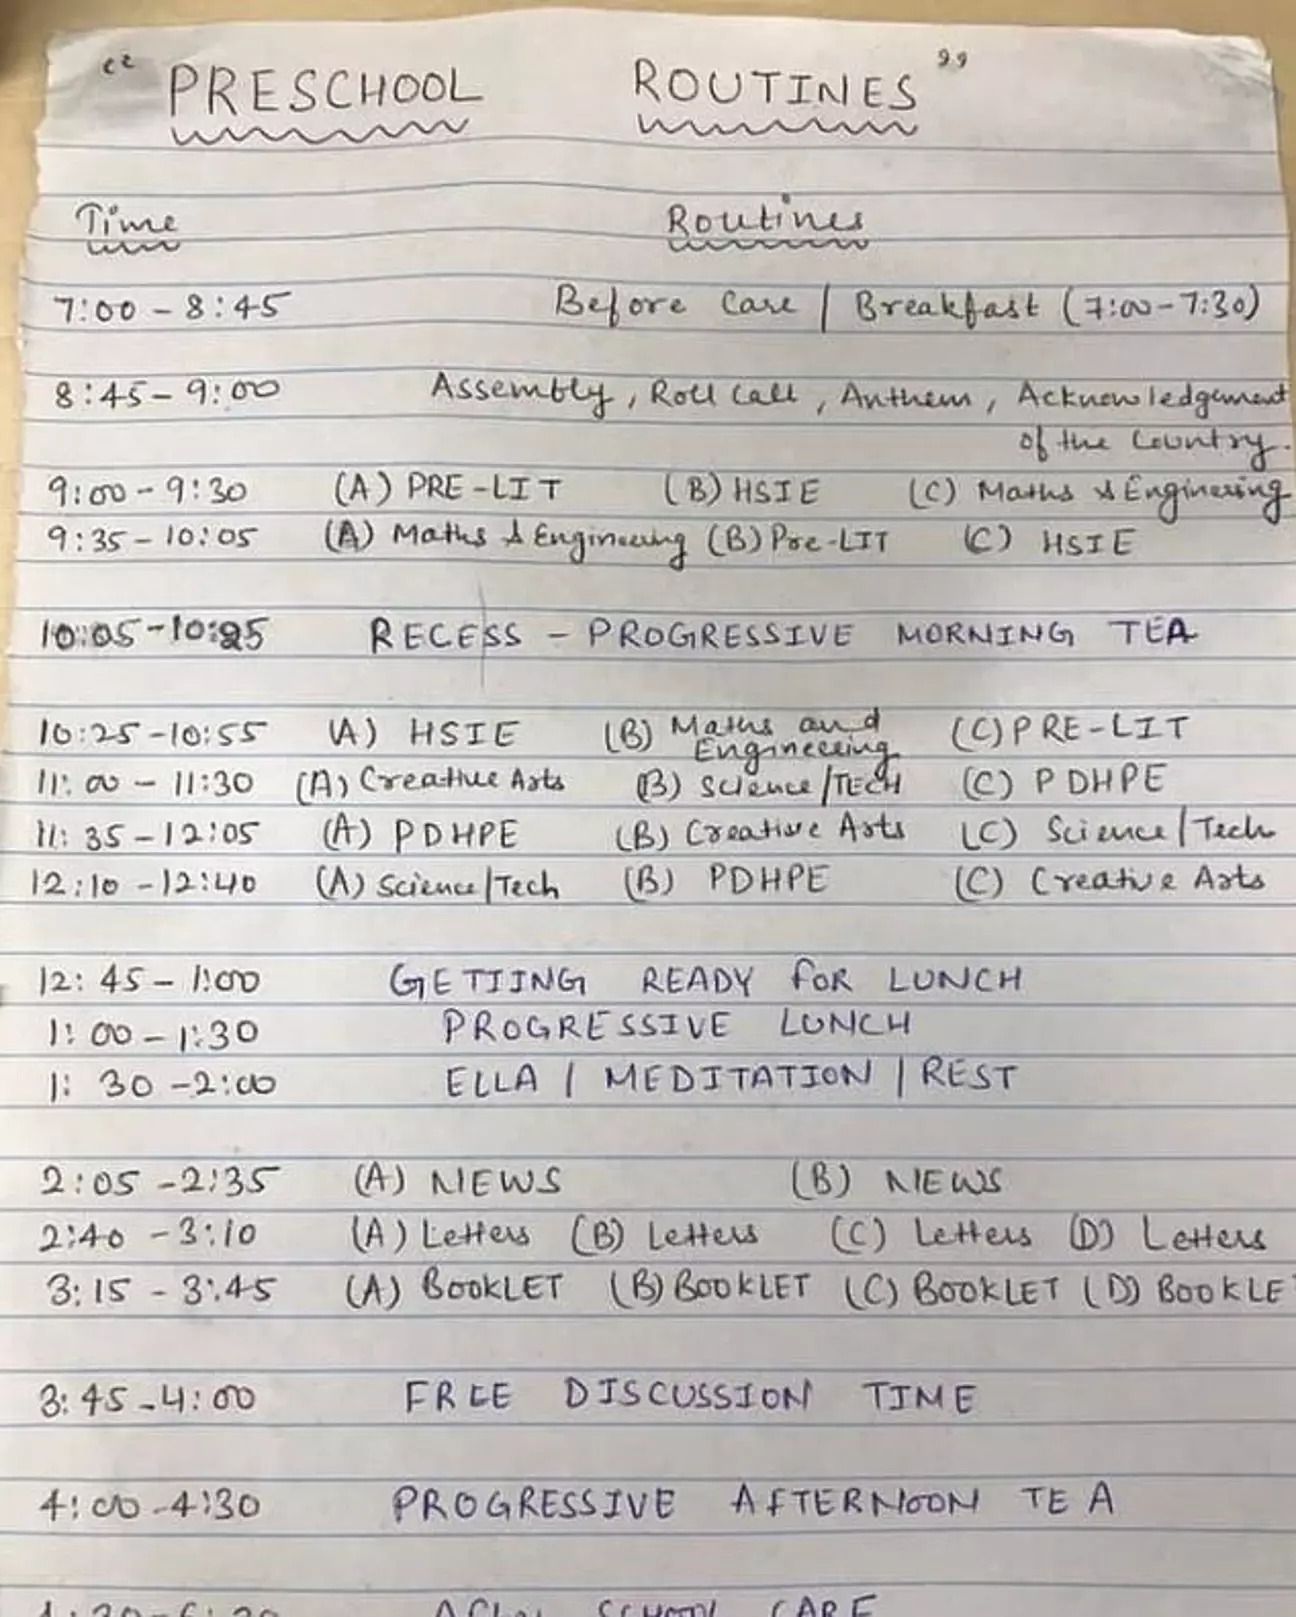 " PRESCHOOL ROUTINES "
Time Routines
7:00 - 8:45 Before Care / Breakfast (7:00 - 7:30)
8:45 - 9:00 Assembly, Roll Call, Anthem, Acknowledgement
of the Country.
9:00 - 9:30 (A) PRE-LIT (B) HSIE (C) Maths & Enginering
9:35 - 10:05 (A) Maths & Engineering (B) Pre-LIT (C) HSIE
10:05 - 10:25 RECESS - PROGRESSIVE MORNING TEA
10:25 - 10:55 (A) HSIE (B) Maths and Engineering (C) PRE-LIT
11:00 - 11:30 (A) Creative Arts (B) Science/TECH (C) PDHPE
11:35 - 12:05 (A) PDHPE (B) Creative Arts (C) Science/Tech
12:10 - 12:40 (A) Science/Tech (B) PDHPE (C) Creative Arts
12:45 - 1:00 GETTING READY FOR LUNCH
1:00 - 1:30 PROGRESSIVE LUNCH
1:30 - 2:00 ELLA / MEDITATION / REST
2:05 - 2:35 (A) NEWS (B) NEWS
2:40 - 3:10 (A) Letters (B) Letters (C) Letters (D) Letters
3:15 - 3:45 (A) BOOKLET (B) BOOKLET (C) BOOKLET (D) BOOKLE
3:45 - 4:00 FREE DISCUSSION TIME
4:00 - 4:30 PROGRESSIVE AFTERNOON TEA
SCHOOL CARE